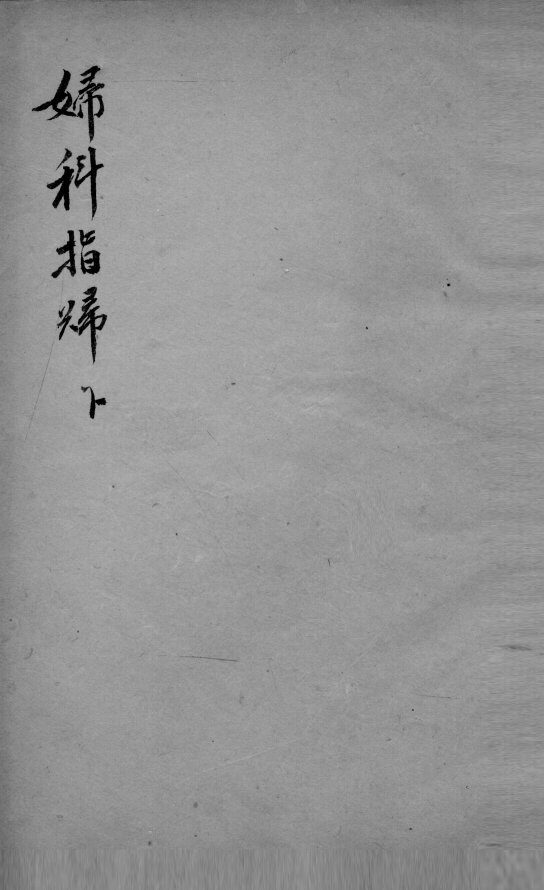 婦科指歸下